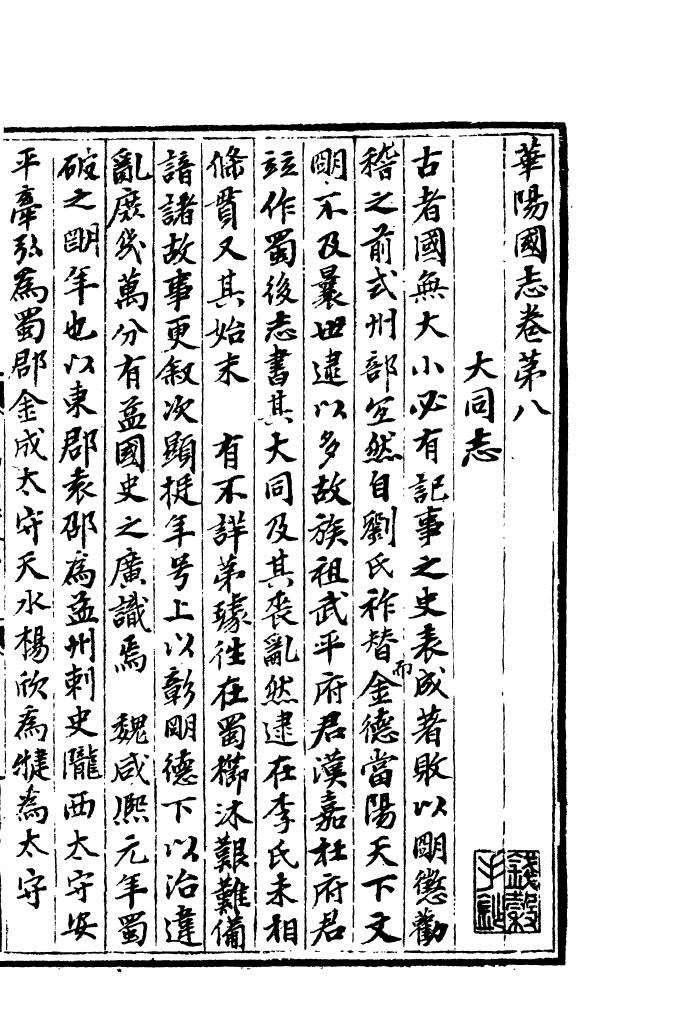 華陽國志卷第八
大同志
古者國無大小必有記事之史表成著敗以明懲勸
稽之前式州部宜然自劉氏祚替而金德當陽天下文
明不及曩世逮以多故族祖武平府君漢嘉杜府君
竝作蜀後志書其大同及其喪亂然逮在李氏未相
條貫又其始末 有不詳第璩往在蜀櫛沐艱難備
諳諸故事更敘次顯挺年号上以彰明德下以治違
亂庶幾萬分有益國史之廣識焉 魏咸熙元年蜀
破之明年也以東郡袁邵為益州刺史隴西太守安
平牽弘為蜀郡金成太守天水楊欣為犍為太守
錢榖手鈔